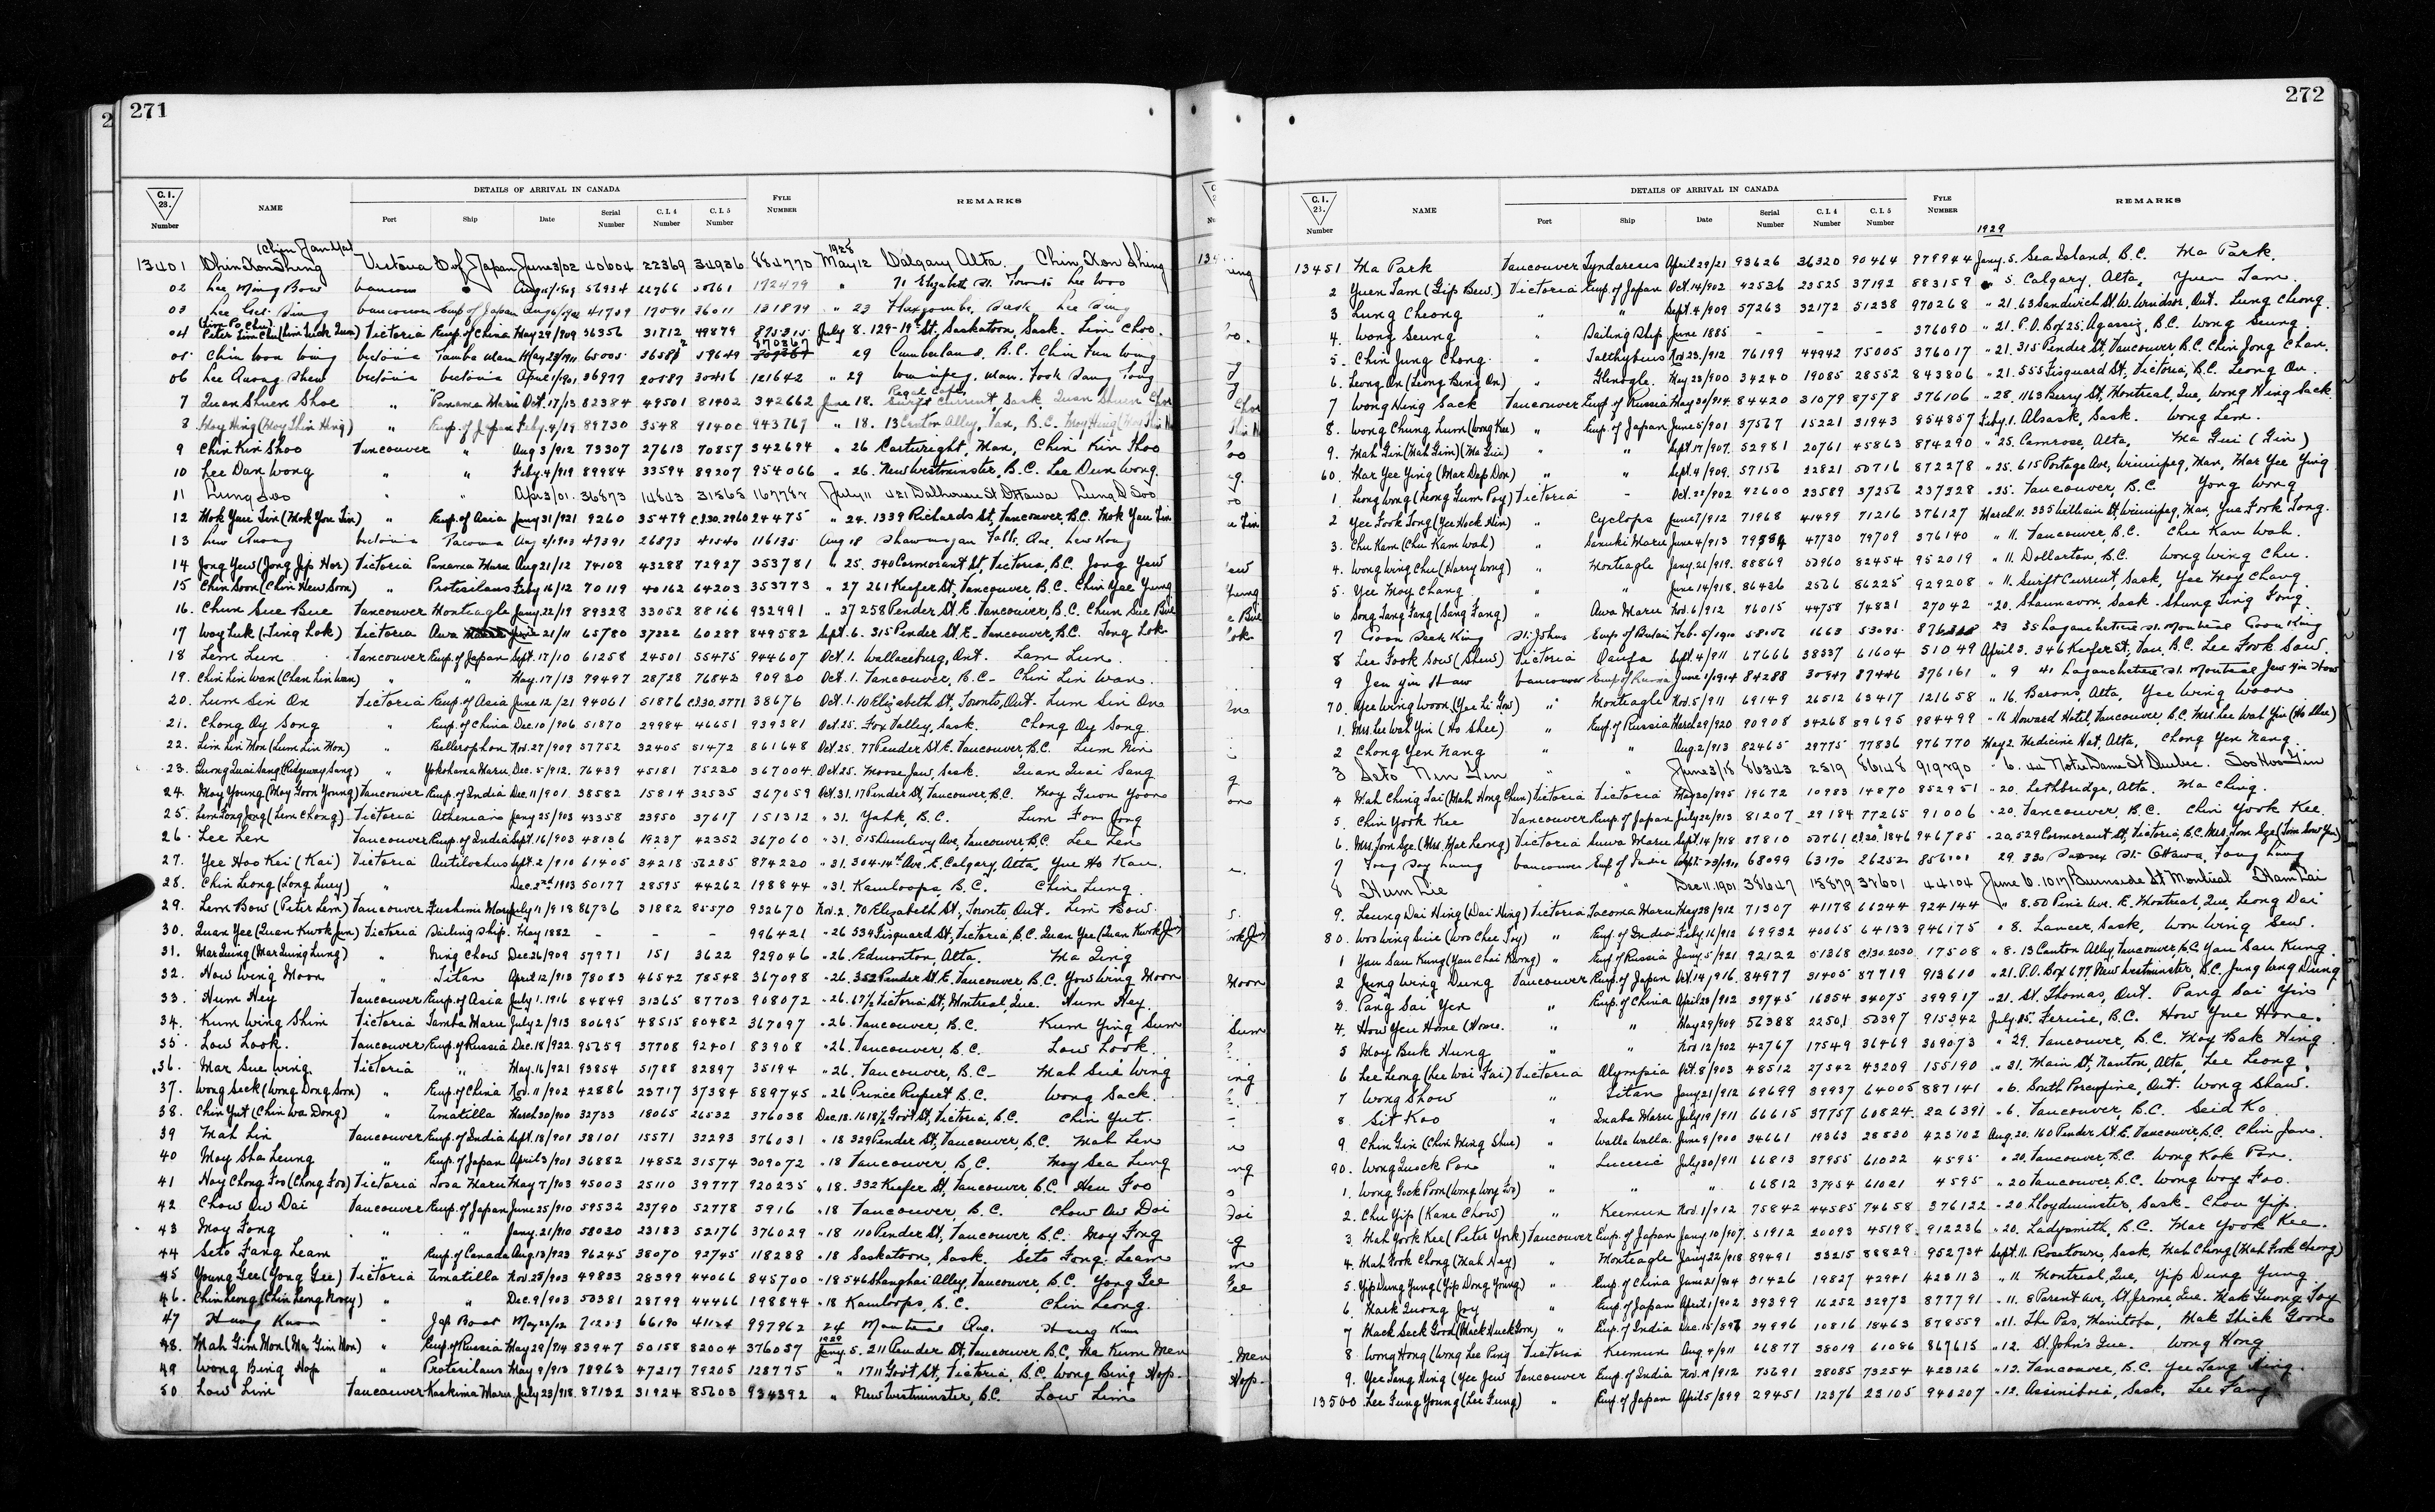 271
DETAILS OF ARRIVAL IN CANADA
C.I. 28. Number NAME Port Ship Date Serial Number C.I.4 Number C.I.5 Number FYLE NUMBER REMARKS
(Chin Jan Yat) 1928
13401 Chin Kon Shing Victoria E of Japan June 3/02 40604 22369 34936 884770 May 12 Calgary Alta. Chin Kon Shing
02 Lee Ming Bow 56934 22766 172479 " 71 Elizabeth St. Toronto Lee Woo
03 Lee Sing Vancouver Emp of Japan 41709 17091 36011 131879 " 23 Sask Lee Sing
04 Peter Lim Chu (Lim Tuck Quan) Victoria Emp. of China May 29/909 56356 31712 49879 July 8. 129-19th St, Saskatoon, Sask. Lim Choo.
05 Chin Won Wing Victoria Tamba Maru May 23/1911 65005 59649 870367 29 Cumberland, B.C. Chin Fun Wing
06 Lee Quong Shew Victoria Victoria April 1/1901 36977 20887 30416 121642 " 29 Winnipeg, Man. Fook Sang Tong
7 Quan Shuen Shoe " Panama Maru Oct. 17/13 82384 49501 81402 342662 June 18. Regal Cafe, Swift Current, Sask. Quan Shuen Choe
8 Moy Hing (Moy Shin Hing) " Emp. of Japan Feby. 4/19 89730 3548 91400 943767 " 18. 13 Canton Alley, Van, B.C. Moy Hing
9 Chin Kin Shoo Vancouver " Aug 3/912 73307 27613 70857 342694 " 26 Cartwright, Man, Chin Kin Shoo
10 Lee Dan Wong " " Feby. 4/919 89984 33594 89207 954066 " 26. New Westminster, B.C. Lee Dun Wong.
11 Lung Soo " " Apr 3/01. 36873 14843 31565 167782 July 11 421 Dalhousie St Ottawa Lung D Soo
12 Mok Yuu Tin (Mok You Tin) " Emp. of Asia Jany 31/921 9260 35479 C.I.30.2960 24475 " 24. 1339 Richards St, Vancouver, B.C. Mok Yau Tin
13 Lew Quong Victoria Tacoma Aug 2/1903 47391 26873 41540 116135 Aug 18 Shawinigan Falls, Que. Lew Kong
14 Jong Yew (Jong Jip Hor) Victoria Panama Maru Aug 21/12 74108 43288 72927 353781 " 25. 540 Cormorant St, Victoria, B.C. Jong Yew
15 Chin Soon (Chin Hew Soon) " Protesilaus Feby 16/12 70119 40162 64203 353773 " 27 261 Keefer St, Vancouver, B.C. Chin Yee Yung
16. Chun Sue Bue Vancouver Monteagle Jany. 22/19 89328 33052 88166 932991 " 27 258 Pender St. E. Vancouver, B.C. Chun Sue Bue
17 Woy Luk (Ting Lok) Victoria Awa Maru June 21/11 65780 37222 60289 849582 Sept. 6. 315 Pender St. E. Vancouver, B.C. Tong Lok
18 Lem Lum Vancouver Emp. of Japan Sept. 17/10 61258 24501 55475 944607 Oct. 1. Wallaceburg, Ont. Lam Lum.
19. Chin Lin Wan (Chan Lin Wan) " " May. 17/13 79497 28728 76842 90930 Oct. 1. Vancouver, B.C. Chin Lin Wan.
20. Lum Sin On Victoria Emp. of Asia June 12/21 94061 51876 C.I.30.3771 38676 Oct. 1. 10 Elizabeth St, Toronto, Ont. Lum Sin On
21. Chong Oy Song " Emp. of China Dec. 10/906 51870 29984 46651 939381 Oct. 25. Fox Valley, Sask. Chong Oy Song
22. Lim Lin Mon (Lum Lin Mon) " Bellerophon Nov. 27/909 57752 32405 51472 861648 Oct. 25. 77 Pender St. E. Vancouver, B.C. Lum Min
23. Quong Quai Sang (Ridgeway Sang) " Yokohama Maru Dec. 5/912. 76439 45181 75220 367004 Oct. 25. Moose Jaw, Sask. Quan Quai Sang
24. Moy Young (Moy Goon Young) Vancouver Emp. of India Dec. 11/901 38582 15814 32535 367059 Oct. 31. 17 Pender St, Vancouver, B.C. Moy Guon Yoon
25. Lem Fong Jong (Lem Chong) Victoria Athenian Jany 25/903 43358 23950 37617 151312 " 31. Yahk, B.C. Lum Fon Jong
26. Lee Len Vancouver Emp. of India Sept. 16/903 48136 19237 42352 367060 " 31. 515 Dunlevy Ave, Vancouver, B.C. Lee Len
27. Yee Hoo Kai (Kai) Victoria Antilochus Sept. 2/910 61405 34218 56285 874220 " 31. 304-14th Ave. E. Calgary, Alta, Yue Ho Kau.
28. Chin Leong (Long Luey) " Dec. 2nd 1903 50177 28595 44262 198844 " 31. Kamloops B.C. Chin Lung.
29. Lem Bow (Peter Lem) Vancouver Fushimi Maru July 11/918 86736 31882 85570 932670 Nov. 2. 70 Elizabeth St, Toronto, Ont. Lim Bow.
30. Quan Yee (Quan Kwok Jun) Victoria Sailing Ship. May 1882 - - - 996421 " 26 534 Fisguard St, Victoria, B.C. Quan Yee (Quan Kwok Jun)
31. Mar Quing (Mar Quing Lung) " Ning Chow Dec 26/909 57971 151 3622 929046 " 26. Edmonton, Alta. Ma Qing
32. How Wing Moon " Titan April 12/913 78083 46542 78548 367098 " 26. 352 Pender St. E. Vancouver B.C. Yow Wing Moon
33. Hum Hey Vancouver Emp. of Asia July 1. 1916 84849 31365 87703 908072 " 26. 17½ Victoria St, Montreal, Que. Hum Hey
34. Kum Wing Shim Victoria Tamba Maru July 2/913 80695 48515 80482 367097 " 26. Vancouver, B.C. Kum Ying Sum
35. Low Look. Vancouver Emp. of Russia Dec. 18/922. 95659 37708 92401 83908 " 26. Vancouver, B.C. Low Look.
36. Mar Sue Wing Victoria " May. 16/921 93854 51788 82897 35194 " 26. Vancouver, B.C. Mah Sue Wing
37. Wong Seck (Wong Dong Soon) " Emp. of China Nov. 11/902 42886 23717 37384 889745 " 26 Prince Rupert B.C. Wong Sack.
38. Chin Yut (Chin Wa Dong) " Umatilla March 30/900 32733 18065 26532 376038 Dec. 18. 1618½ Govt St, Victoria, B.C. Chin Yut.
39 Mah Lin Vancouver Emp. of India Sept. 18/901 38101 15571 32293 376031 " 18 329 Pender St, Vancouver, B.C. Mah Len
40 Moy Sha Leung " Emp. of Japan April 3/901 36882 14852 31574 309072 " 18 Vancouver, B.C. Moy Sea Lung
41 Hoy Chong Foo (Chong Foo) Victoria Tosa Maru May 7/903 45003 25110 39777 920235 " 18. 332 Keefer St, Vancouver, B.C. Heu Foo
42 Chow Ow Dai Vancouver Emp. of Japan June 25/910 59532 23790 52778 5916 " 18 Vancouver, B.C. Chow Ow Doi
43 Moy Fong " " Jany. 21/910 58020 23183 52176 376029 " 18 110 Pender St, Vancouver, B.C. Moy Fong
44 Seto Fang Leam " Emp. of Canada Aug. 13/923 96245 38070 92745 118288 " 18 Saskatoon, Sask. Seto Fong Leam
45 Young Gee (Yong Gee) Victoria Umatilla Nov. 25/903 49833 28399 44066 845700 " 18 546 Shanghai Alley, Vancouver, B.C. Yong Gee
46. Chin Leong (Chin Leong Novey) " " Dec. 9/903 50381 28799 44466 198844 " 18 Kamloops, B.C. Chin Leong.
47 Hung Kuon " Jap Boat May 28/12 71223 66190 41124 997962 24 Montreal Que. Hung Kum
48. Mah Gim Mon (Ma Gim Mon) " Emp. of Russia May 29/914 83947 50158 82004 376057 1929 Jany. 5. 211 Pender St, Vancouver B.C. Ma Kum Men
49 Wong Bing Hop " Protesilaus May 9/913 78963 47217 79205 128775 " 1711 Govt St, Victoria, B.C. Wong Bing Hop.
50 Low Lim Vancouver Kashima Maru. July 23/918. 87132 31924 85603 934392 " New Westminster, B.C. Low Lim
272
DETAILS OF ARRIVAL IN CANADA
C.I. 28. Number NAME Port Ship Date Serial Number C.I.4 Number C.I.5 Number FYLE NUMBER REMARKS
1929
13451 Ma Park Vancouver Tyndareus April 29/21 93626 36320 90464 979944 Jany. 5. Sea Island, B.C. Ma Park.
2 Yuen Tam (Gip Bew.) Victoria Emp. of Japan Oct. 14/902 42536 23525 37192 883159 " 5. Calgary, Alta, Yuen Tam.
3 Lung Cheong " " Sept. 4/909 57263 32172 51238 970268 " 21. 63 Sandwich St. W. Windsor, Ont. Lung Chong.
4. Wong Seung " Sailing Ship June 1885 - - - 376090 " 21. P.O. Box 25, Agassiz, B.C. Wong Seung.
5. Chin Jung Chong. " Talthybius Nov. 23./912 76199 44942 75005 376017 " 21. 315 Pender St, Vancouver, B.C. Chin Jong Chan.
6. Leong On (Leong Bing On) " Glenogle. May 23/900 34240 19085 28552 843806 " 21. 555 Fisguard St, Victoria, B.C. Leong On.
7 Wong Hing Sack Vancouver Emp. of Russia May 30/914. 84420 31079 87578 376106 " 28. 1163 Berry St, Montreal, Que, Wong Hing Sack
8. Wong Chung Lum (Wong Kee) " Emp. of Japan June 5/901 37567 15221 31943 954857 Feby. 1. Alsask, Sask. Wong Lem.
9. Mah Gin (Mah Gim) (Ma Gin) " " Sept. 17/907. 52981 20761 45863 874290 " 25. Camrose, Alta, Ma Gui (Gin)
60. Mar Yee Ying (Mar Dep Don) " " Sept. 4/909. 57156 22821 50716 872278 " 25. 615 Portage Ave, Winnipeg, Man, Mar Yee Ying
1 Leong Wong (Leong Gum Poy) Victoria - Oct. 22/902 42600 23589 37256 237328 " 25. Vancouver, B.C. Yong Wong
2 Yee Fook Tong (Yee Hock Him) " Cyclops June 7/912 71968 41499 71216 376127 March 11. 335 William St, Winnipeg, Man, Yue Fook Tong.
3. Chu Kam (Chu Kam Wah) " Sanuki Maru June 4/913 79584 47730 79709 376140 " 11. Vancouver, B.C. Chu Kan Wah.
4. Wong Wing Chu (Harry Wong) " Monteagle Jany. 21/919. 88869 50960 82454 952019 " 11. Dollarton, B.C. Wong Wing Chu.
5. Yee Moy Chang. " " June 14/918. 86426 2566 86225 929208 " 11. Swift Current, Sask, Yee Moy Chang.
6 Song Tang Fang (Sang Fang) " Awa Maru Nov. 6/912 76015 44758 74821 27042 " 20. Shaunavon, Sask. Shung Ting Fong.
7 Goon Seek King St. Johns Emp. of Britain Feb. 5/1910 58106 1663 53095 23 35 Lagauchetiere St. Montreal Goon King
8 Lee Fook Sow (Shew) Victoria Oanfa Sept. 4/911 67666 38537 61604 51049 April 3. 346 Keefer St, Van, B.C. Lee Fook Sow.
9 Jew Yin Haw Vancouver Emp of Russia June 1/1914 84288 30947 87446 376161 " 9 41 Lagauchetiere St. Montreal Jew Yin How
70. Yee Wing Woon (Yee Li Gow) " Monteagle Nov. 5/911 69149 26512 63417 121658 " 16. Barons, Alta, Yee Wing Woon
1. Mrs. Lee Wah Yin (Ho Shee) " Emp. of Russia March 29/920 90908 34268 89695 984499 " 16 Howard Hotel, Vancouver, B.C. Mrs. Lee Wah Yin (Ho Shee)
2 Chong Yen Nang " " Aug. 2/913 82465 29775 77836 976770 May 2. Medicine Hat, Alta, Chong Yen Nang.
3 Seto Nen Yin " " June 3/18 86343 2519 86148 919290 " 6. 42 Notre Dame St Quebec. Soo Hoo Gin
4 Mah Ching Tai (Mah Hong Chun) Victoria Victoria May 20/895 19672 10983 14870 852951 " 20. Lethbridge, Alta. Ma Ching.
5. Chin Yook Kee Vancouver Emp. of Japan July 22/913 81207 29184 77265 91006 " 20. Vancouver, B.C. Chin Yook Kee.
6. Mrs. Jom Sze. (Mrs. Mar Leong) Victoria Suwa Maru Sept. 14/918 87810 50761 C.I.30.1846 946785 " 20. 529 Cormorant St, Victoria, B.C. Mrs. Jom Sze (Tom Sow Yin)
7 Fong Soy Lung Vancouver Emp of India Sept. 23/1911 68099 63170 26252 856101 29. 330 Sussex St. Ottawa, Fong Lung
8 Hum Lie " " Dec 11. 1901 38647 15879 32601 44104 June 6. 1017 Burnside St Montreal Ham Lai
9. Leung Dai Hing (Dai Hing) Victoria Tacoma Maru May 28/912 71307 41178 66244 924144 " 8. 50 Pine Ave. E. Montreal, Que, Leong Dai
80. Woo Wing Suie (Woo Chee Toy) " Emp. of India Feby. 16/912 69932 40065 64133 946175 " 8. Lancer, Sask, Won Wing Sew.
1 Yau Sau Kung (Yau Chai Kwong) " Emp of Russia Jany. 5/921 92122 51368 C.I.30.2030 17508 " 8. 13 Canton Alley, Vancouver, B.C. Yau Sau Kung.
2 Jung Wing Dung Vancouver Emp. of Japan Oct. 14/916. 84977 31405 87719 913610 " 21. P.O. Box 677, New Westminster, B.C. Jung Wing Dung
3 Pang Sai Yen " Emp. of China April 20/902 39745 16354 34075 399917 " 21. St. Thomas, Ont. Pang Sai Yin
4. How Yeu Home (Home. " " May 29/909 56388 22501 50397 915342 July 25. Fernie, B.C. How Yue Hone.
5 Moy Buk Hung " " Nov. 12/902 42767 17549 36469 309073 " 29. Vancouver, B.C. Moy Bak Hing
6 Lee Leong (Lee Wai Fai) Victoria Olympia Oct. 8/903 48512 27542 43209 155190 " 31. Main St, Nanton, Alta, Lee Leong.
7 Wong Show " Titan Jany 21/912 69699 39937 64005 887141 " 6. South Porcupine, Ont. Wong Shaw.
8. Sit Koo " Inaba Maru July 19/911 66615 37757 60824. 226391 " 6. Vancouver, B.C. Seid Ko
9. Chin Gin (Chin Ming Shue) " Walla Walla. June 9/900 34661 19363 28830 423102 Aug. 20. 160 Pender St. E. Vancouver, B.C. Chin Jan.
90. Wong Quock Pon " Luceric July 30/911 66813 37955 61022 4595 " 20. Vancouver, B.C. Wong Kok Pon.
1. Wong Gock Poon (Wong Woy Foo) " " " 66812 37954 61021 4595 " 20 Vancouver, B.C. Wong Woy Foo.
2. Chu Yip (Kane Chow) " Keemun Nov. 1/912 75842 44585 74658 376122 " 20. Lloydminster, Sask. Chou Yip.
3. Mah Yook Kee (Peter York) Vancouver Emp. of Japan Jany 10/907. 51912 20093 45198 912236 " 20. Ladysmith, B.C. Mar Yook Kee.
4. Mah Fook Chong (Mah Hay) " Monteagle Jany 22/918 89491 33215 88829 952734 Sept. 11. Rosetown, Sask, Mah Chong (Mah Fook Chong)
5. Yip Dung Jung (Yip Dong Young) " Emp. of China June 21/904 31426 19827 42941 423113 " 11 Montreal, Que, Yip Dung Yung
6. Mark Quong Joy " Emp. of Japan April 1/902 39399 16252 32973 877791 " 11. 8 Parent Ave, St. Jerome, Que. Mak Quong Joy
7 Mack Seck Good (Mack Huck Goon) " Emp. of India Dec. 15/897 24996 10816 18463 878559 " 11. The Pas, Manitoba, Mak Shick Goon
8 Wong Hong (Wong Lee Ping Victoria Keemun Aug. 4/911 66877 38019 61086 867615 " 12. St. John's Que. Wong Hong
9. Yee Tang Hing (Yee Jew Vancouver Emp. of India Nov. 19/912 75691 28085 73254 423126 " 12. Vancouver, B.C. Yee Tang Hing.
13500 Lee Fung Young (Lee Fung) " Emp. of Japan April 5/899 29451 12376 23105 940207 " 12. Assiniboia, Sask, Lee Fang